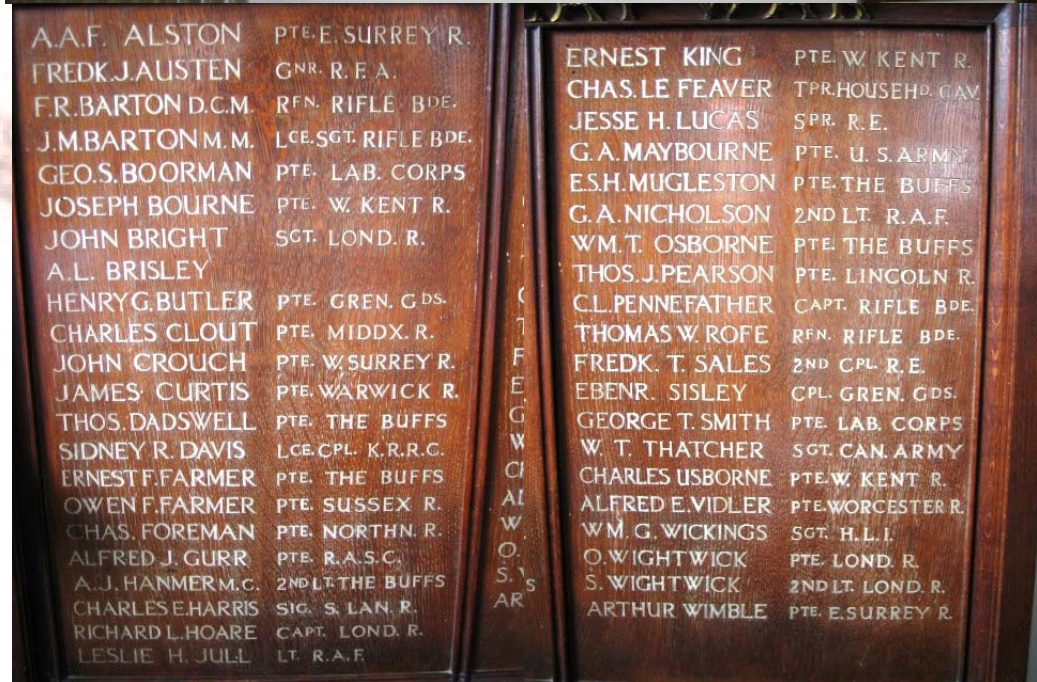 A.A.F. ALSTON PTE. E. SURREY R.
FREDK. J. AUSTEN GNR. R.F.A.
F.R. BARTON D.C.M. RFN. RIFLE BDE.
J.M. BARTON M.M. LCE. SGT. RIFLE BDE.
GEO. S. BOORMAN PTE. LAB. CORPS
JOSEPH BOURNE PTE. W. KENT R.
JOHN BRIGHT SGT. LOND. R.
A.L. BRISLEY
HENRY G. BUTLER PTE. GREN. GDS.
CHARLES CLOUT PTE. MIDDX. R.
JOHN CROUCH PTE. W. SURREY R.
JAMES CURTIS PTE. WARWICK R.
THOS. DADSWELL PTE. THE BUFFS
SIDNEY R. DAVIS LCE. CPL. K.R.R.C.
ERNEST F. FARMER PTE. THE BUFFS
OWEN F. FARMER PTE. SUSSEX R.
CHAS. FOREMAN PTE. NORTHN. R.
ALFRED J. GURR PTE. R.A.S.C.
A.J. HANMER M.C. 2ND LT. THE BUFFS
CHARLES E. HARRIS SIG. S. LAN. R.
RICHARD L. HOARE CAPT. LOND. R.
LESLIE H. JULL LT. R.A.F.
ERNEST KING PTE. W. KENT R.
CHAS. LE FEAVER TPR. HOUSEHD. CAV.
JESSE H. LUCAS SPR. R.E.
G.A. MAYBOURNE PTE. U.S. ARMY
E.S.H. MUGLESTON PTE. THE BUFFS
G.A. NICHOLSON 2ND LT. R.A.F.
WM. T. OSBORNE PTE. THE BUFFS
THOS. J. PEARSON PTE. LINCOLN R.
C.L. PENNEFATHER CAPT. RIFLE BDE.
THOMAS W. ROFE RFN. RIFLE BDE.
FREDK. T. SALES 2ND CPL. R.E.
EBENR. SISLEY CPL. GREN. GDS.
GEORGE T. SMITH PTE. LAB. CORPS
W. T. THATCHER SGT. CAN. ARMY
CHARLES USBORNE PTE. W. KENT R.
ALFRED E. VIDLER PTE. WORCESTER R.
WM. G. WICKINGS SGT. H.L.I.
O. WIGHTWICK PTE. LOND. R.
S. WIGHTWICK 2ND LT. LOND. R.
ARTHUR WIMBLE PTE. E. SURREY R.